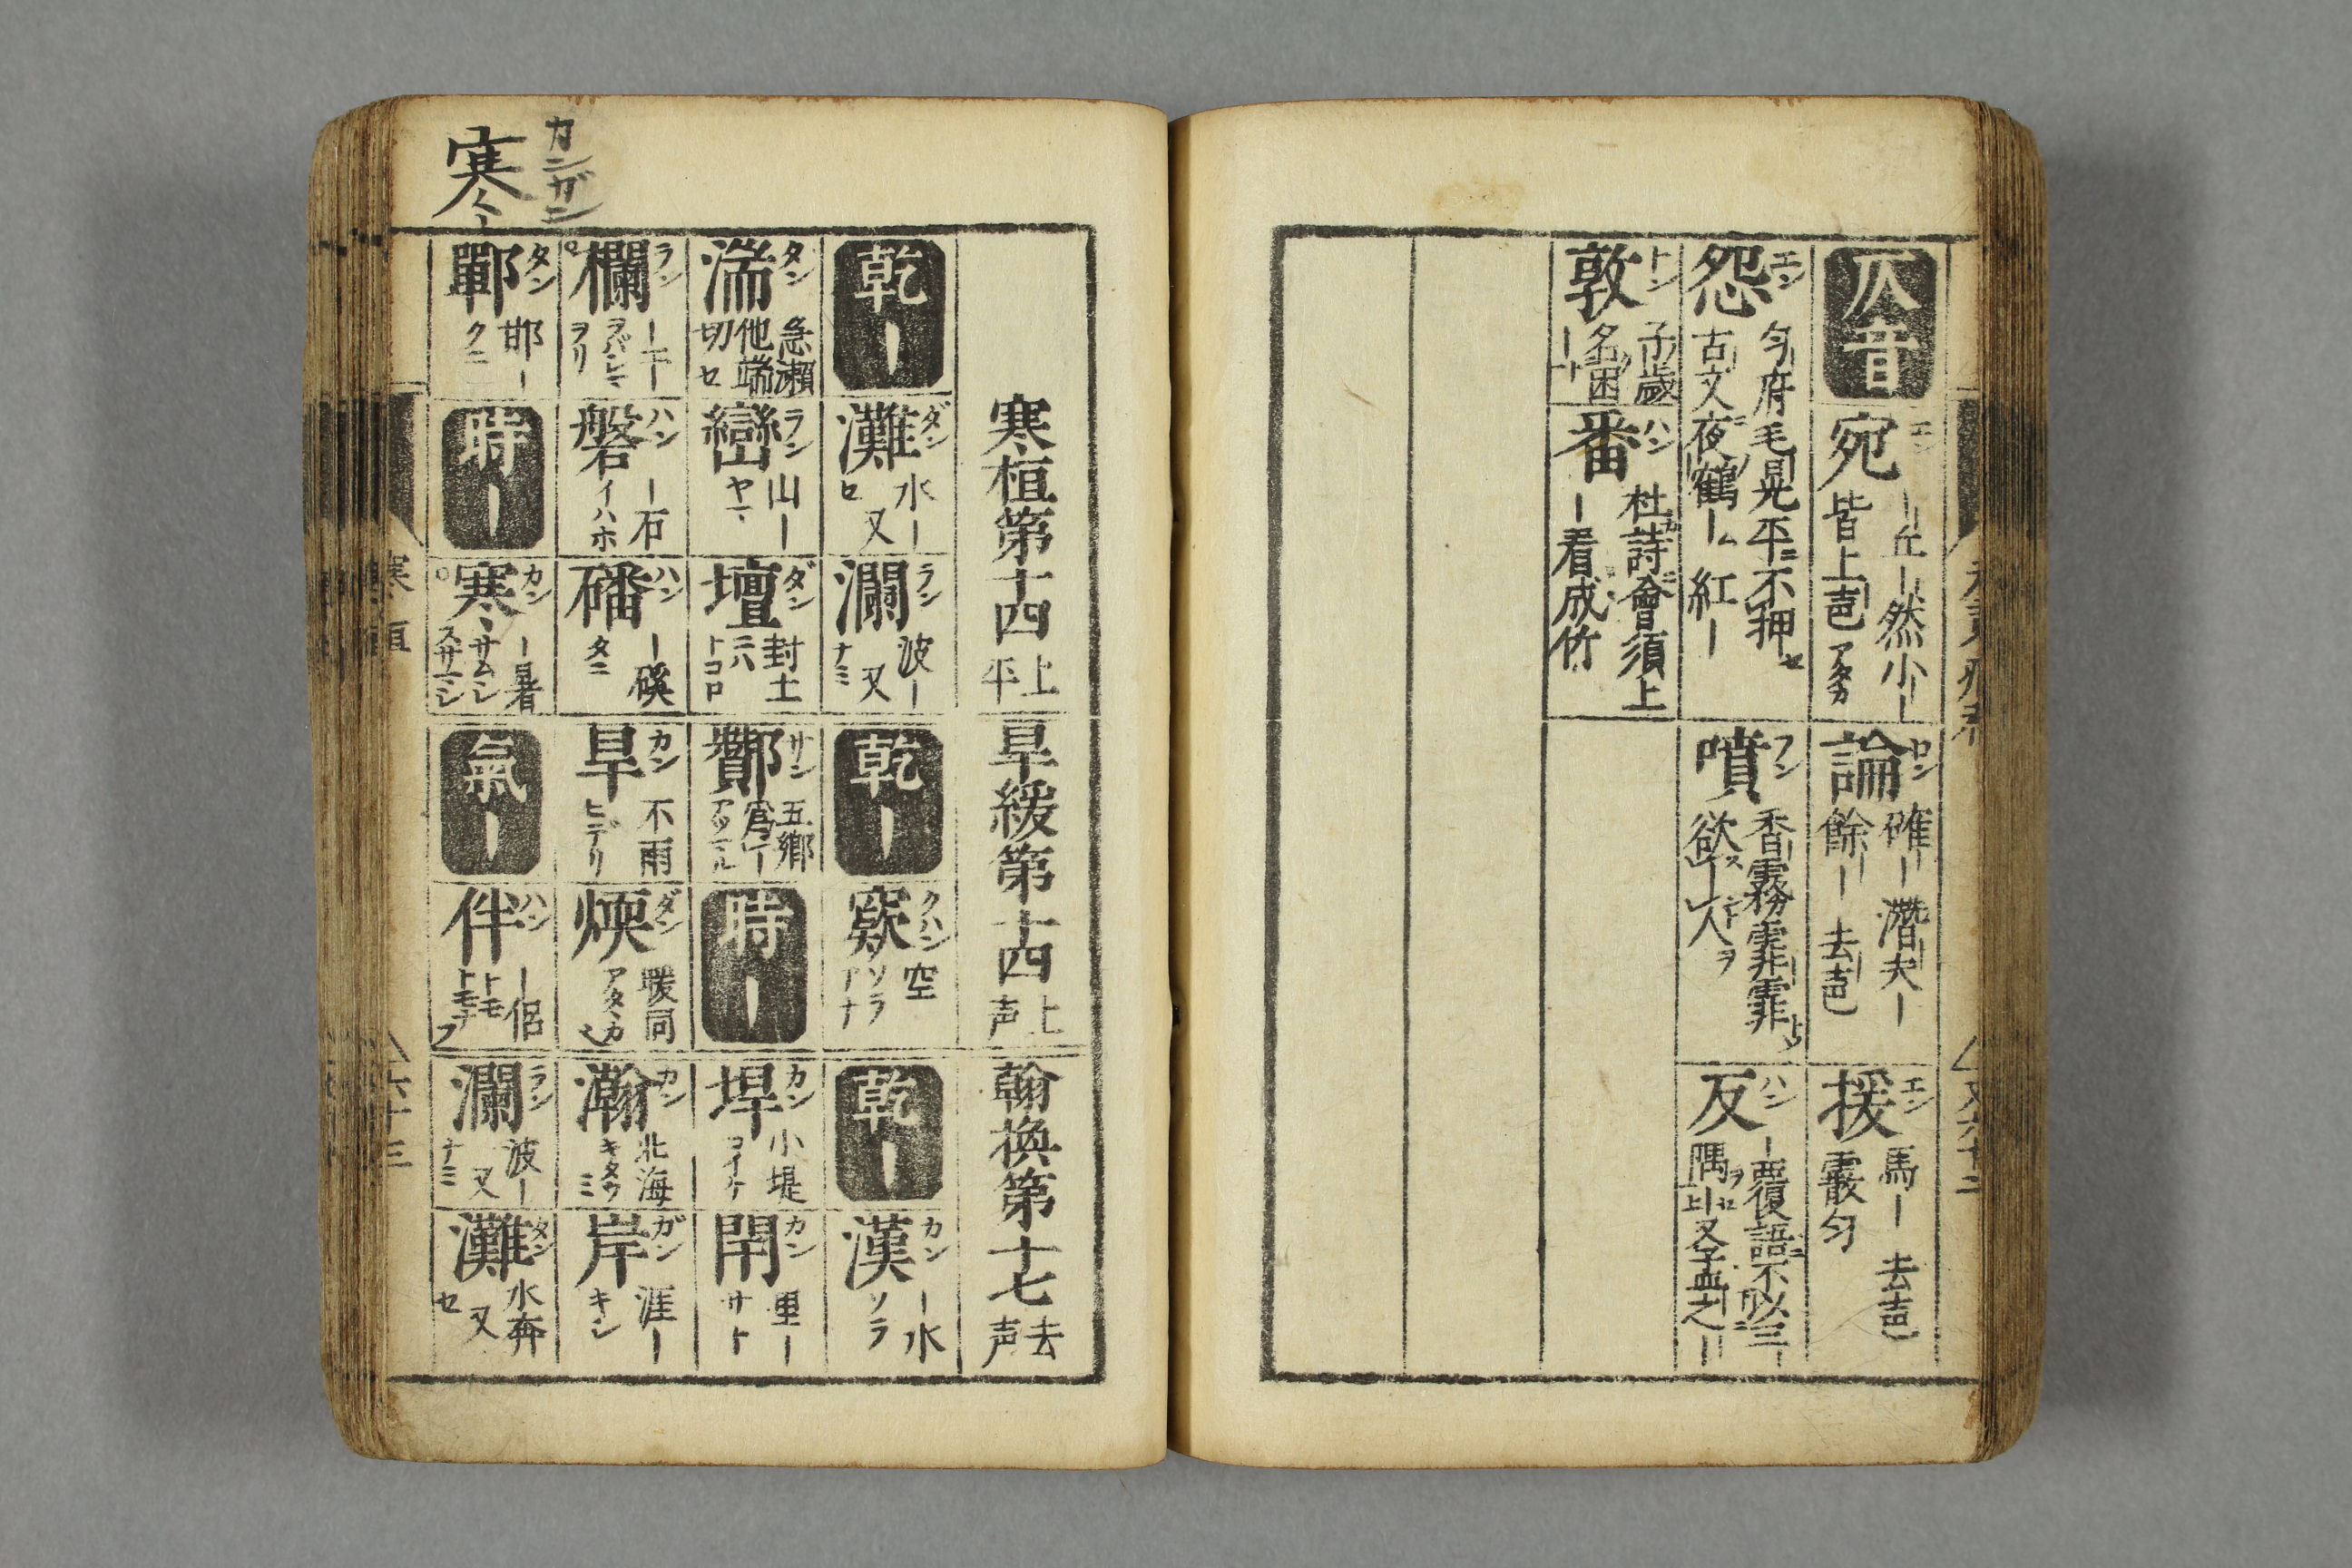 仄音
宛 エン ｜丘｜然小｜
皆上声 アタカ
論 ロン 確｜潜夫｜
餘｜ 去声
援 エン 馬｜ 去声
霰匀
怨 エン 匀府毛晃平ニ不押セ
古文夜鶴｜ム紅｜
噴 フン 香霧霏霏トシ
欲ス｜人ヲ
反 ハン ｜覆語ニ不以三｜
隅ヲ
敦 トン 子歳
名困｜
番 ハン 杜詩會須上
｜看成竹
寒桓第十四 上平
旱緩第十四 上声
翰換第十七 去声
乾｜
灘 ダン 水｜
又
瀾 ラン 波｜
又 ナミ
乾｜
窾 クハン 空
ソラ アナ
乾｜
漢 カン ｜水
ソラ
湍 タン 急瀬
他端切 セ
巒 ラン 山｜
ヤマ
壇 ダン 封土
トコロ
酇 サン 五郷
為｜ アツマル
時｜
垾 カン 小堤
コイケ
閈 カン 里｜
サト
欄 ラン ｜干｜
ヲリ
磐 ハン ｜石
イハホ
磻 ハン ｜磎
タニ
旱 カン 不雨
ヒデリ
煗 ダン 暖同
アタヽカ
瀚 カン 北海
キタウミ
岸 ガン 涯｜
キシ
寒 カンガン
鄲 タン 邯｜
クニ
時｜
寒 カン ｜暑
サムシ スサマシ
氣｜
伴 ハン ｜侶
トモ トモナフ
瀾 ラン 波｜
又 ナミ
灘 タン 水奔
又 セ
寒 桓
六十三